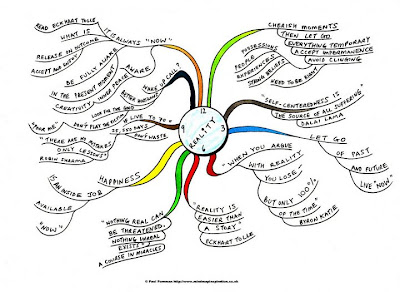 12
3
6
9
REALITY
CHERISH MOMENTS
THEN LET GO
EVERYTHING TEMPORARY
ACCEPT IMPERMANENCE
AVOID CLINGING
POSSESSIONS
PEOPLE
EXPERIENCES
STRONG BELIEFS
NEED TO BE KNOW
"SELF-CENTEREDNESS IS
THE SOURCE OF ALL SUFFERING"
DALAI LAMA
LET GO
OF PAST
AND FUTURE
LIVE "NOW"
"WHEN YOU ARGUE
WITH REALITY
YOU LOSE
BUT ONLY 100%
OF THE TIME"
BYRON KATIE
"REALITY IS
EASIER THAN
A STORY"
ECKHART TOLLE
"NOTHING REAL CAN
BE THREATENED.
NOTHING UNREAL
EXISTS"
A COURSE IN MIRACLES
HAPPINESS
IS AN INSIDE JOB
AVAILABLE
"NOW"
IF LIVE TO 90
32,850 DAYS
DON'T WASTE
LOOK FOR THE GOOD
DON'T PLAY THE VICTIM
"POOR ME"
"THERE ARE NO MISTAKES
ONLY LESSONS"
ROBIN SHARMA
WAKE UP CALL?
AWARE
BE FULLY AWARE
IN THE PRESENT MOMENT
INNER PEACE
CREATIVITY
BETTER DECISIONS
IT IS ALWAYS "NOW"
READ ECKHART TOLLE
WHAT IS
RELEASE ON OUTCOME
ACCEPT AND ENJOY
© Paul Foreman http://www.mindmapinspiration.co.uk